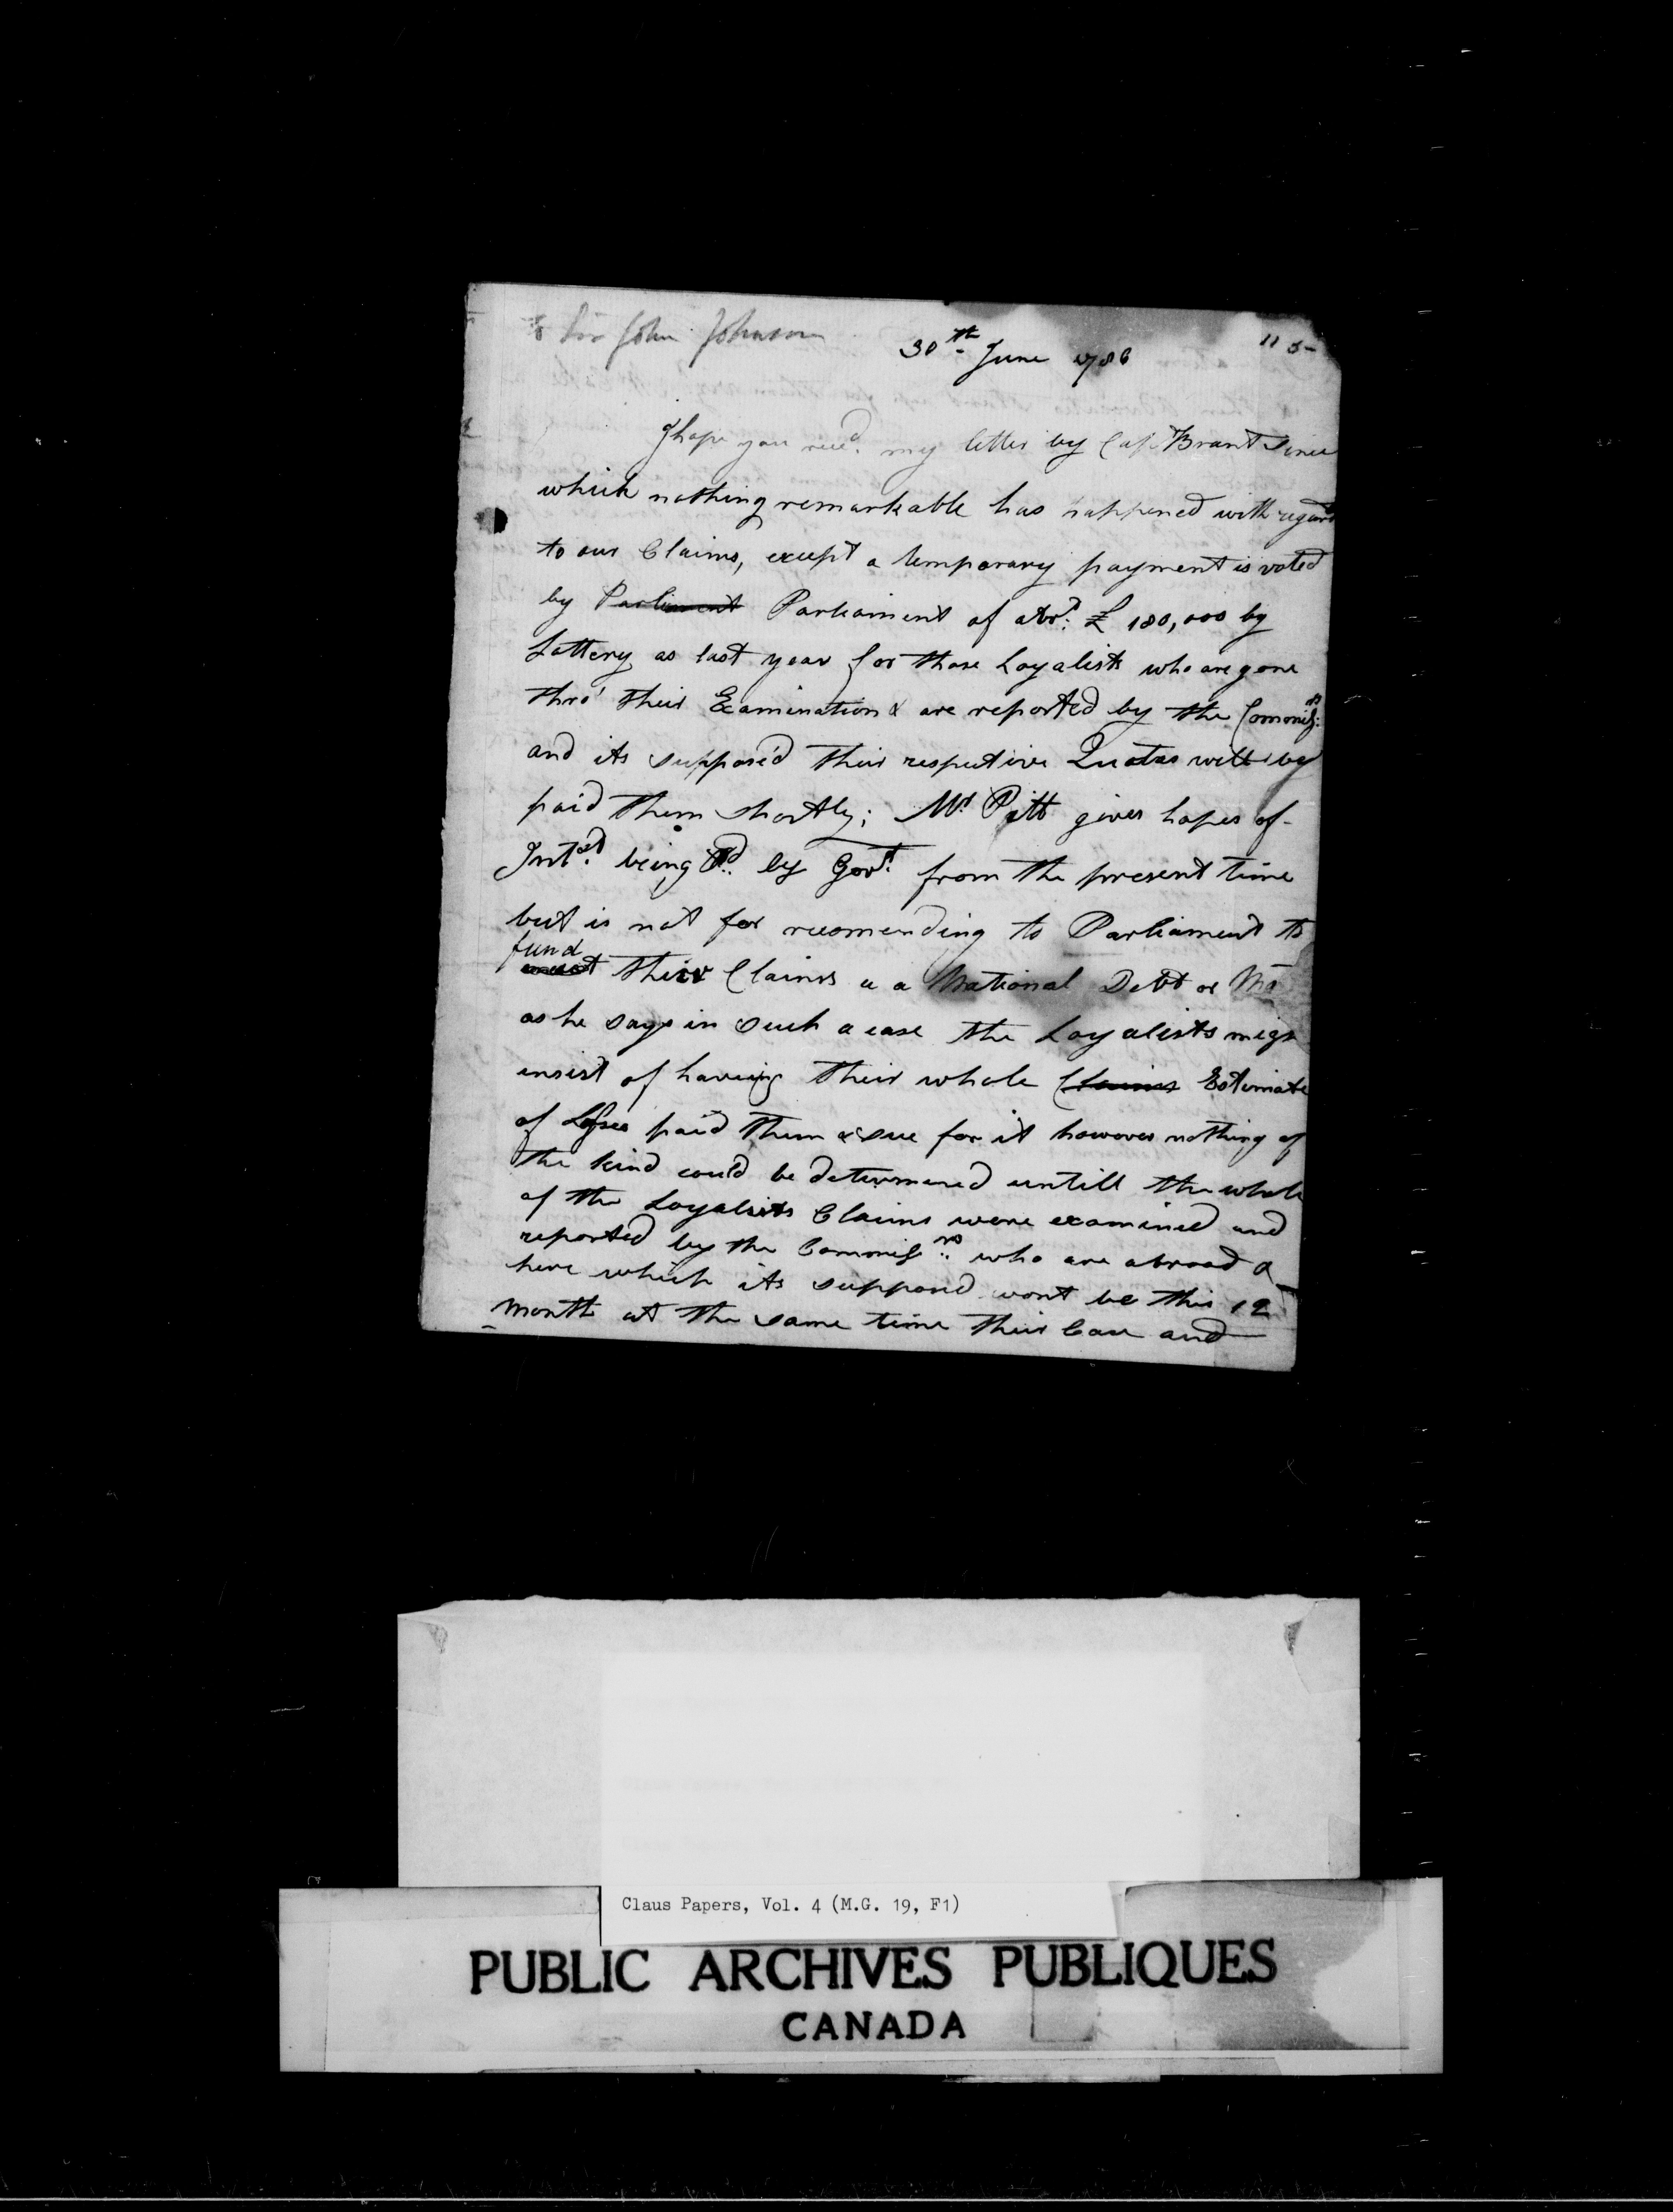 to Sir John Johnson
30th June 1786
115-
I hope you recd. my letter by Cap Brant since
which nothing remarkable has happened with regard
to our Claims, except a temporary payment is voted
by Parliament Parliament of abt: £ 180,000 by
Lottery as last year for those Loyalists who are gone
thro' their Examination & are reported by the Commissrs:
and its suppos'd their respective Quotas will be
paid them shortly; Mr. Pitt gives hopes of
Intst. being Pd.. by Govt. from the present time
but is not for recomending to Parliament to
fund
their Claims as a National Debt or
as he says in such a case the Loyalists migh
insist of having their whole Claims Estimate
of Losses paid them & sue for it however nothing of
the kind could be determined untill the whole
of the Loyalists Claims were examined and
reported by the Commissrs. who are abroad &
here which its supposd wont be this 12
month at the same time their Case and
Claus Papers, Vol. 4 (M.G. 19, F1)
PUBLIC ARCHIVES PUBLIQUES
CANADA